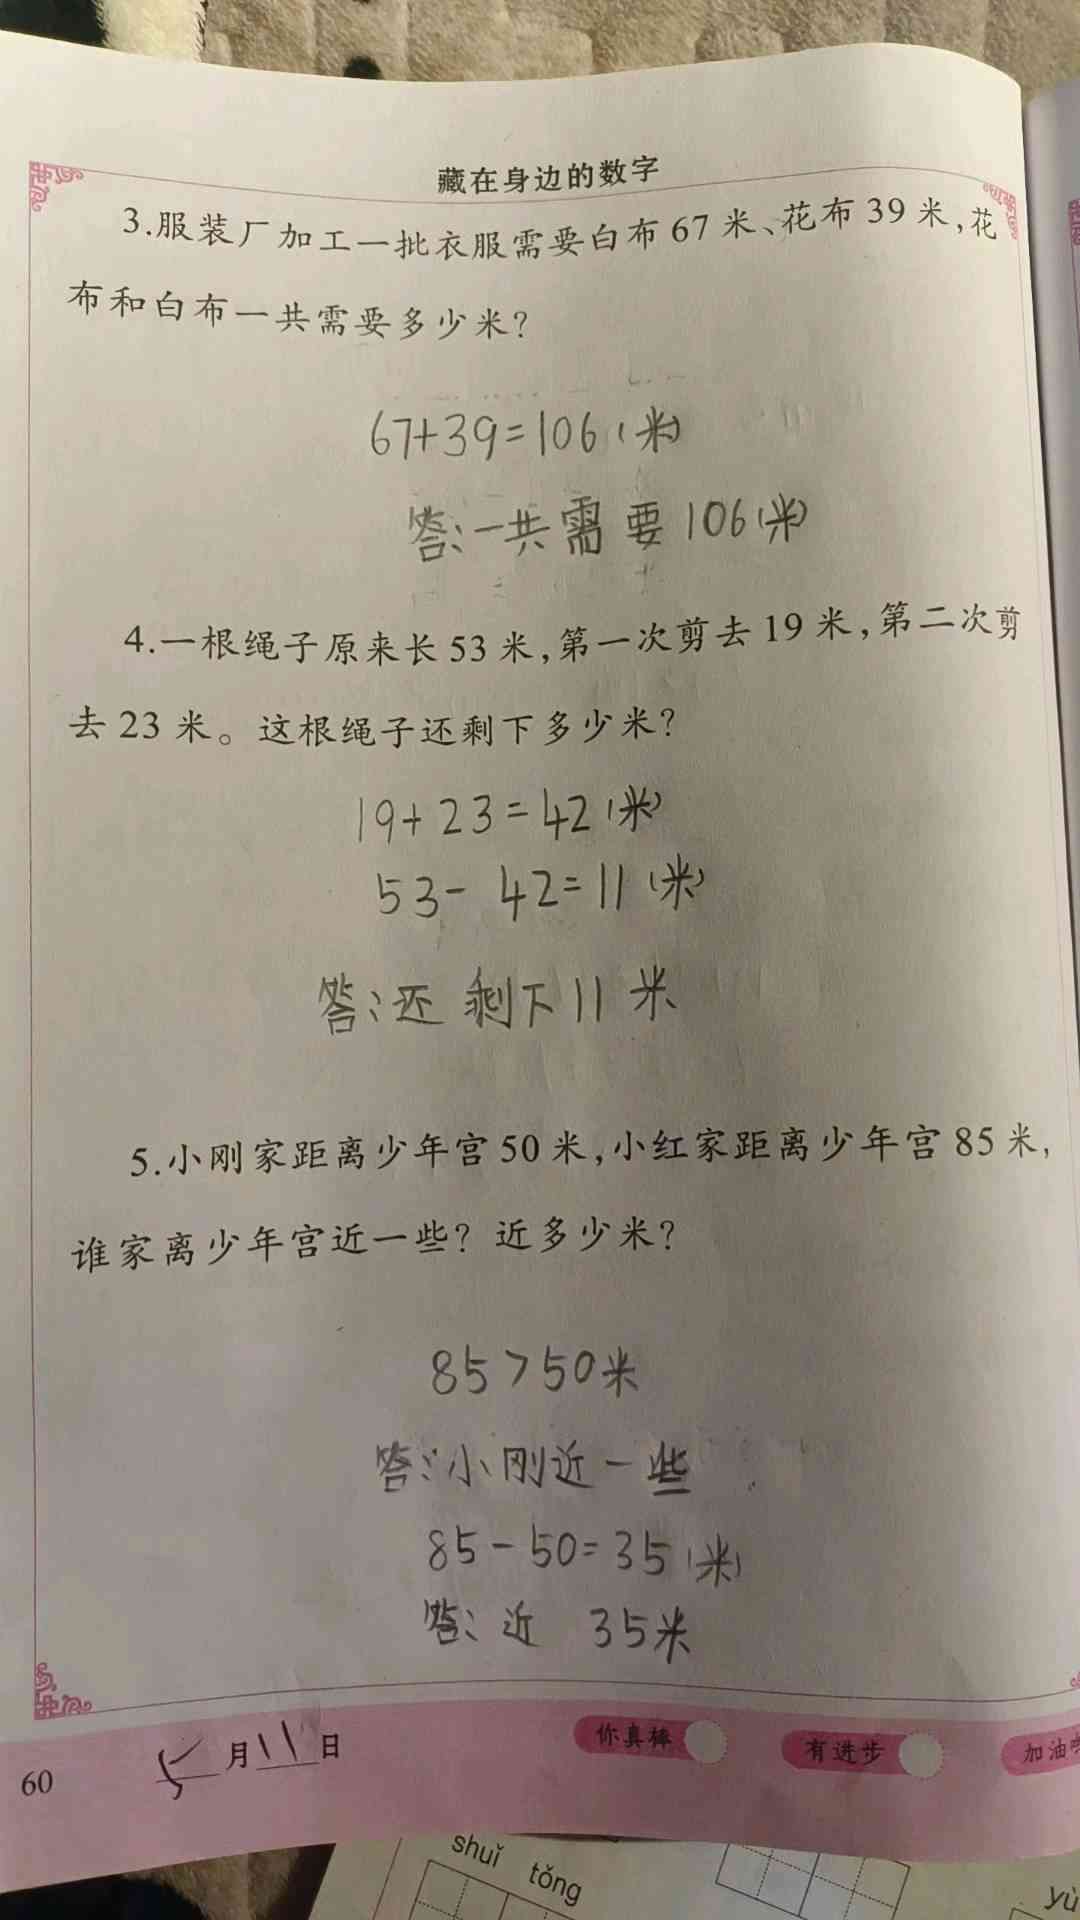 藏在身边的数字
3.服装厂加工一批衣服需要白布67米、花布39米,花
布和白布一共需要多少米?
67+39=106(米)
答:一共需要106(米)
4.一根绳子原来长53米,第一次剪去19米,第二次剪
去23米。这根绳子还剩下多少米?
19+23=42(米)
53-42=11(米)
答:还剩下11米
5.小刚家距离少年宫50米,小红家距离少年宫85米,
谁家离少年宫近一些?近多少米?
85>50米
答:小刚近一些
85-50=35(米)
答:近 35米
5月11日
你真棒 有进步 加油
60
shuǐ tǒng